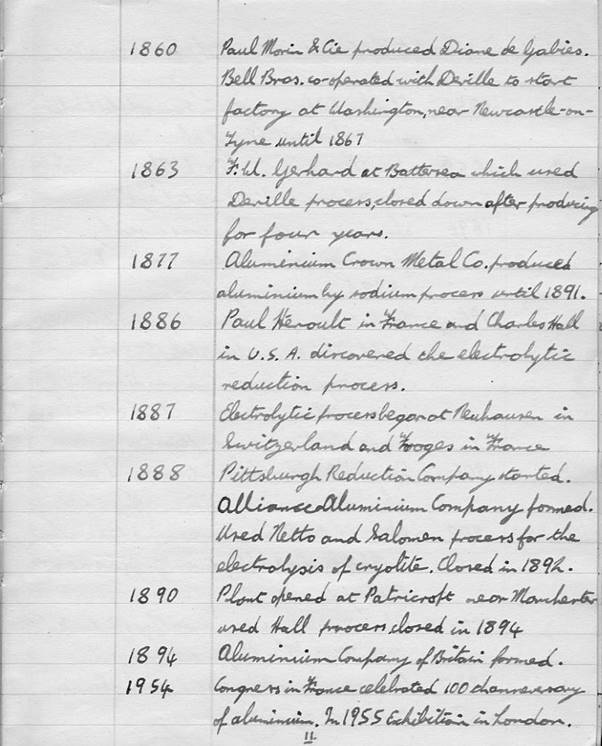 1860 Paul Morin & Cie produced Diane de Gabies.
Bell Bros. co-operated with Deville to start
factory at Washington, near Newcastle-on-
Tyne until 1867
1863 F. W. Gerhard at Battersea which used
Deville process, closed down after producing
for four years.
1877 Aluminium Crown Metal Co. produced
aluminium by sodium process until 1891.
1886 Paul Heroult in France and Charles Hall
in U.S.A. discovered the electrolytic
reduction process.
1887 Electrolytic process began at Neuhausen in
Switzerland and Froges in France
1888 Pittsburgh Reduction Company started.
Alliance Aluminium Company formed.
Used Netto and Salomen process for the
electrolysis of cryolite. Closed in 1892.
1890 Plant opened at Patricroft near Manchester
used Hall process, closed in 1894
1894 Aluminium Company of Britain formed.
1954 Congress in France celebrated 100th anniversary
of aluminium. In 1955 Exhibition in London.
11